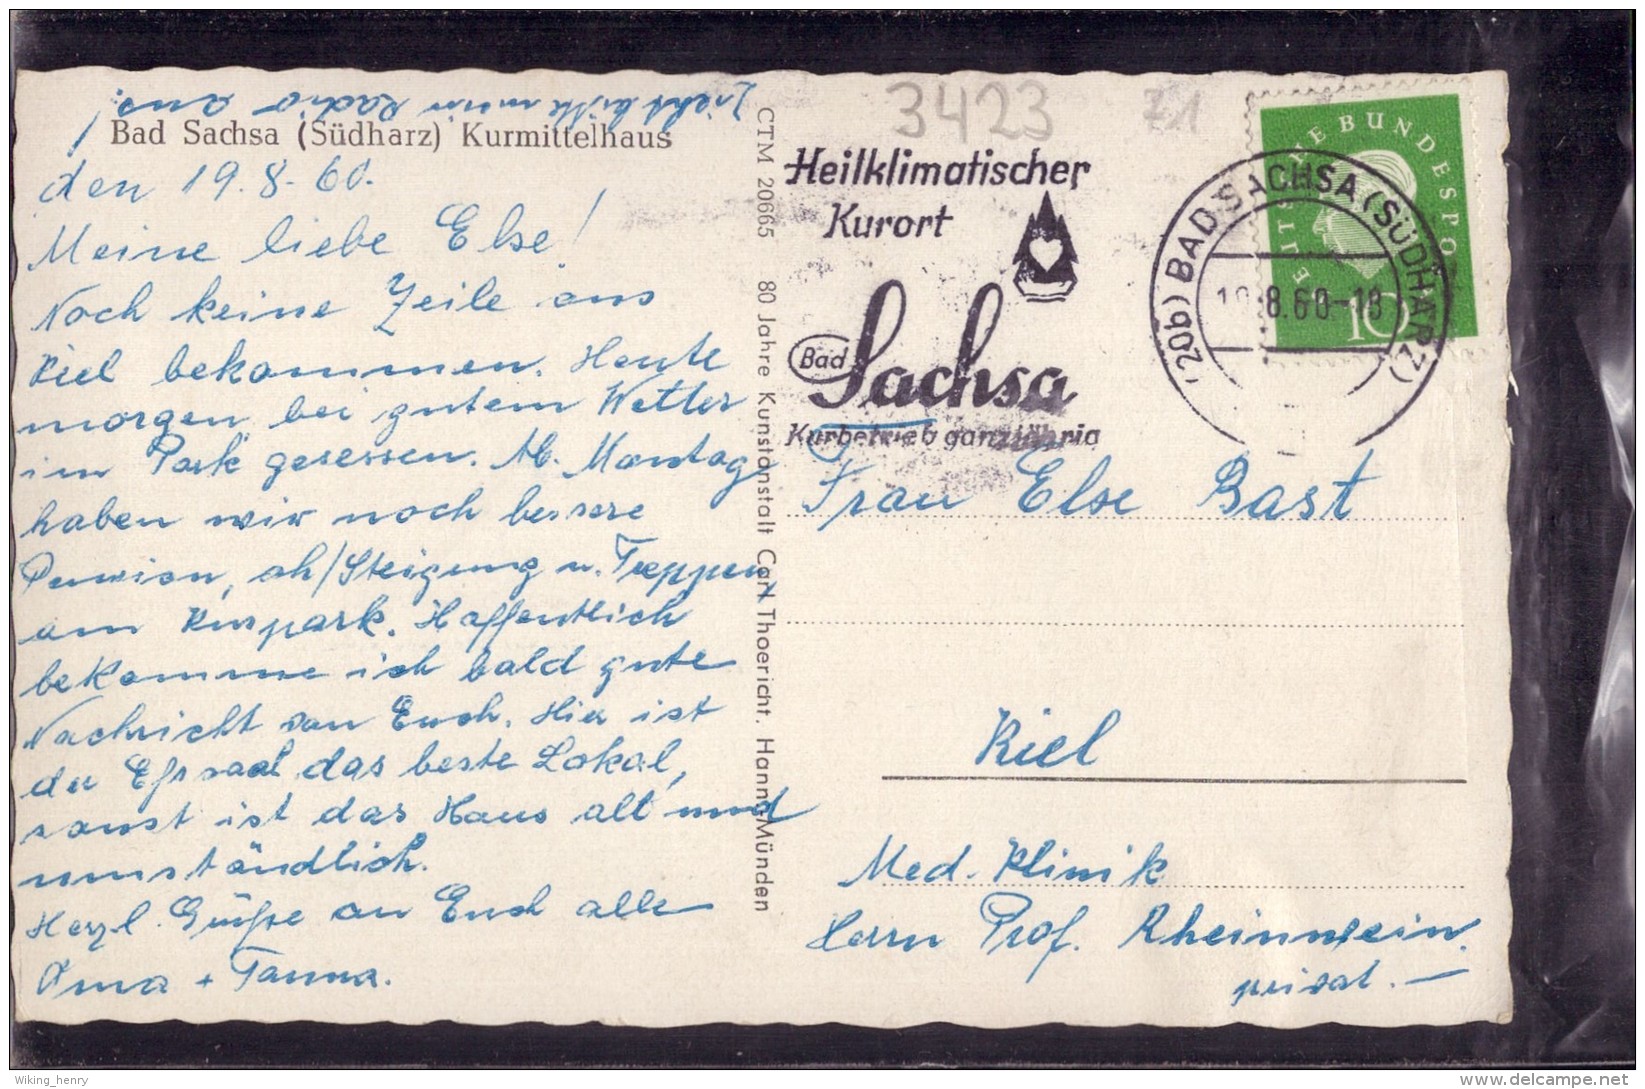 Zieht bitte mein Radio aus!
Bad Sachsa (Südharz) Kurmittelhaus
den 19.8.60.
Meine liebe Else!
Noch keine Zeile aus
Kiel bekommen. Heute
morgen bei gutem Wetter
im Park gesessen. Ab. Montag
haben wir noch bessere
Pension, oh/Steigung u. Treppen,
am Kurpark. Hoffentlich
bekomme ich bald gute
Nachricht von Euch. Hier ist
der Eßsaal das beste Lokal,
sonst ist das Haus alt und
umständlich.
Herzl. Grüße an Euch alle
Oma + Tanna.
CTM 20665 80 Jahre Kunstanstalt Carl Thoericht. Hann. Münden
3423
71
Heilklimatischer
Kurort
Bad Sachsa
Kurbetrieb ganzjährig
(20b) BAD SACHSA (SÜDHARZ)
19.8.60-18
DEUTSCHE BUNDESPO
10
Frau Else Bast
Kiel
Med. Klinik
Herrn Prof. Rheinwein.
privat. —
Wiking_henry
delcampe.net